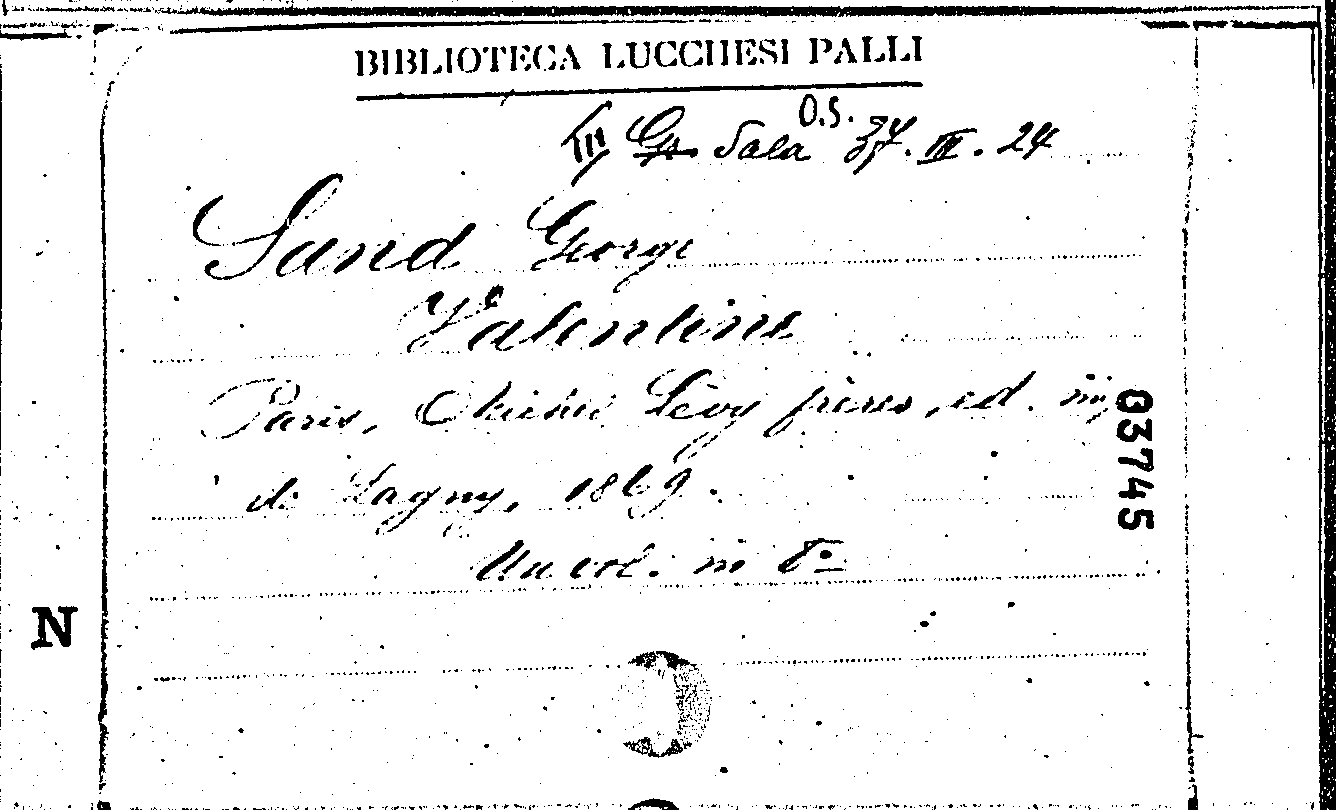 BIBLIOTECA LUCCHESI PALLI
O.S.
Gr. Sala 37. III. 24
Sand George
Valentine
Paris, Michel Lévy frères, ed. imp.
di Lagny, 1869.
Un vol. in 8º
03745
N